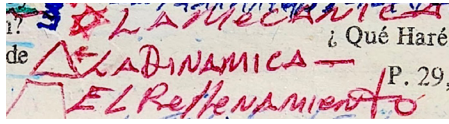 n?
LA MECANICA
¿ Qué Haré
de
LA DINAMICA —
P. 29,
EL RELLENAMIENTO